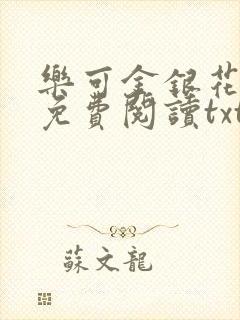 樂可金銀花
免費閱讀txt
蘇文龍